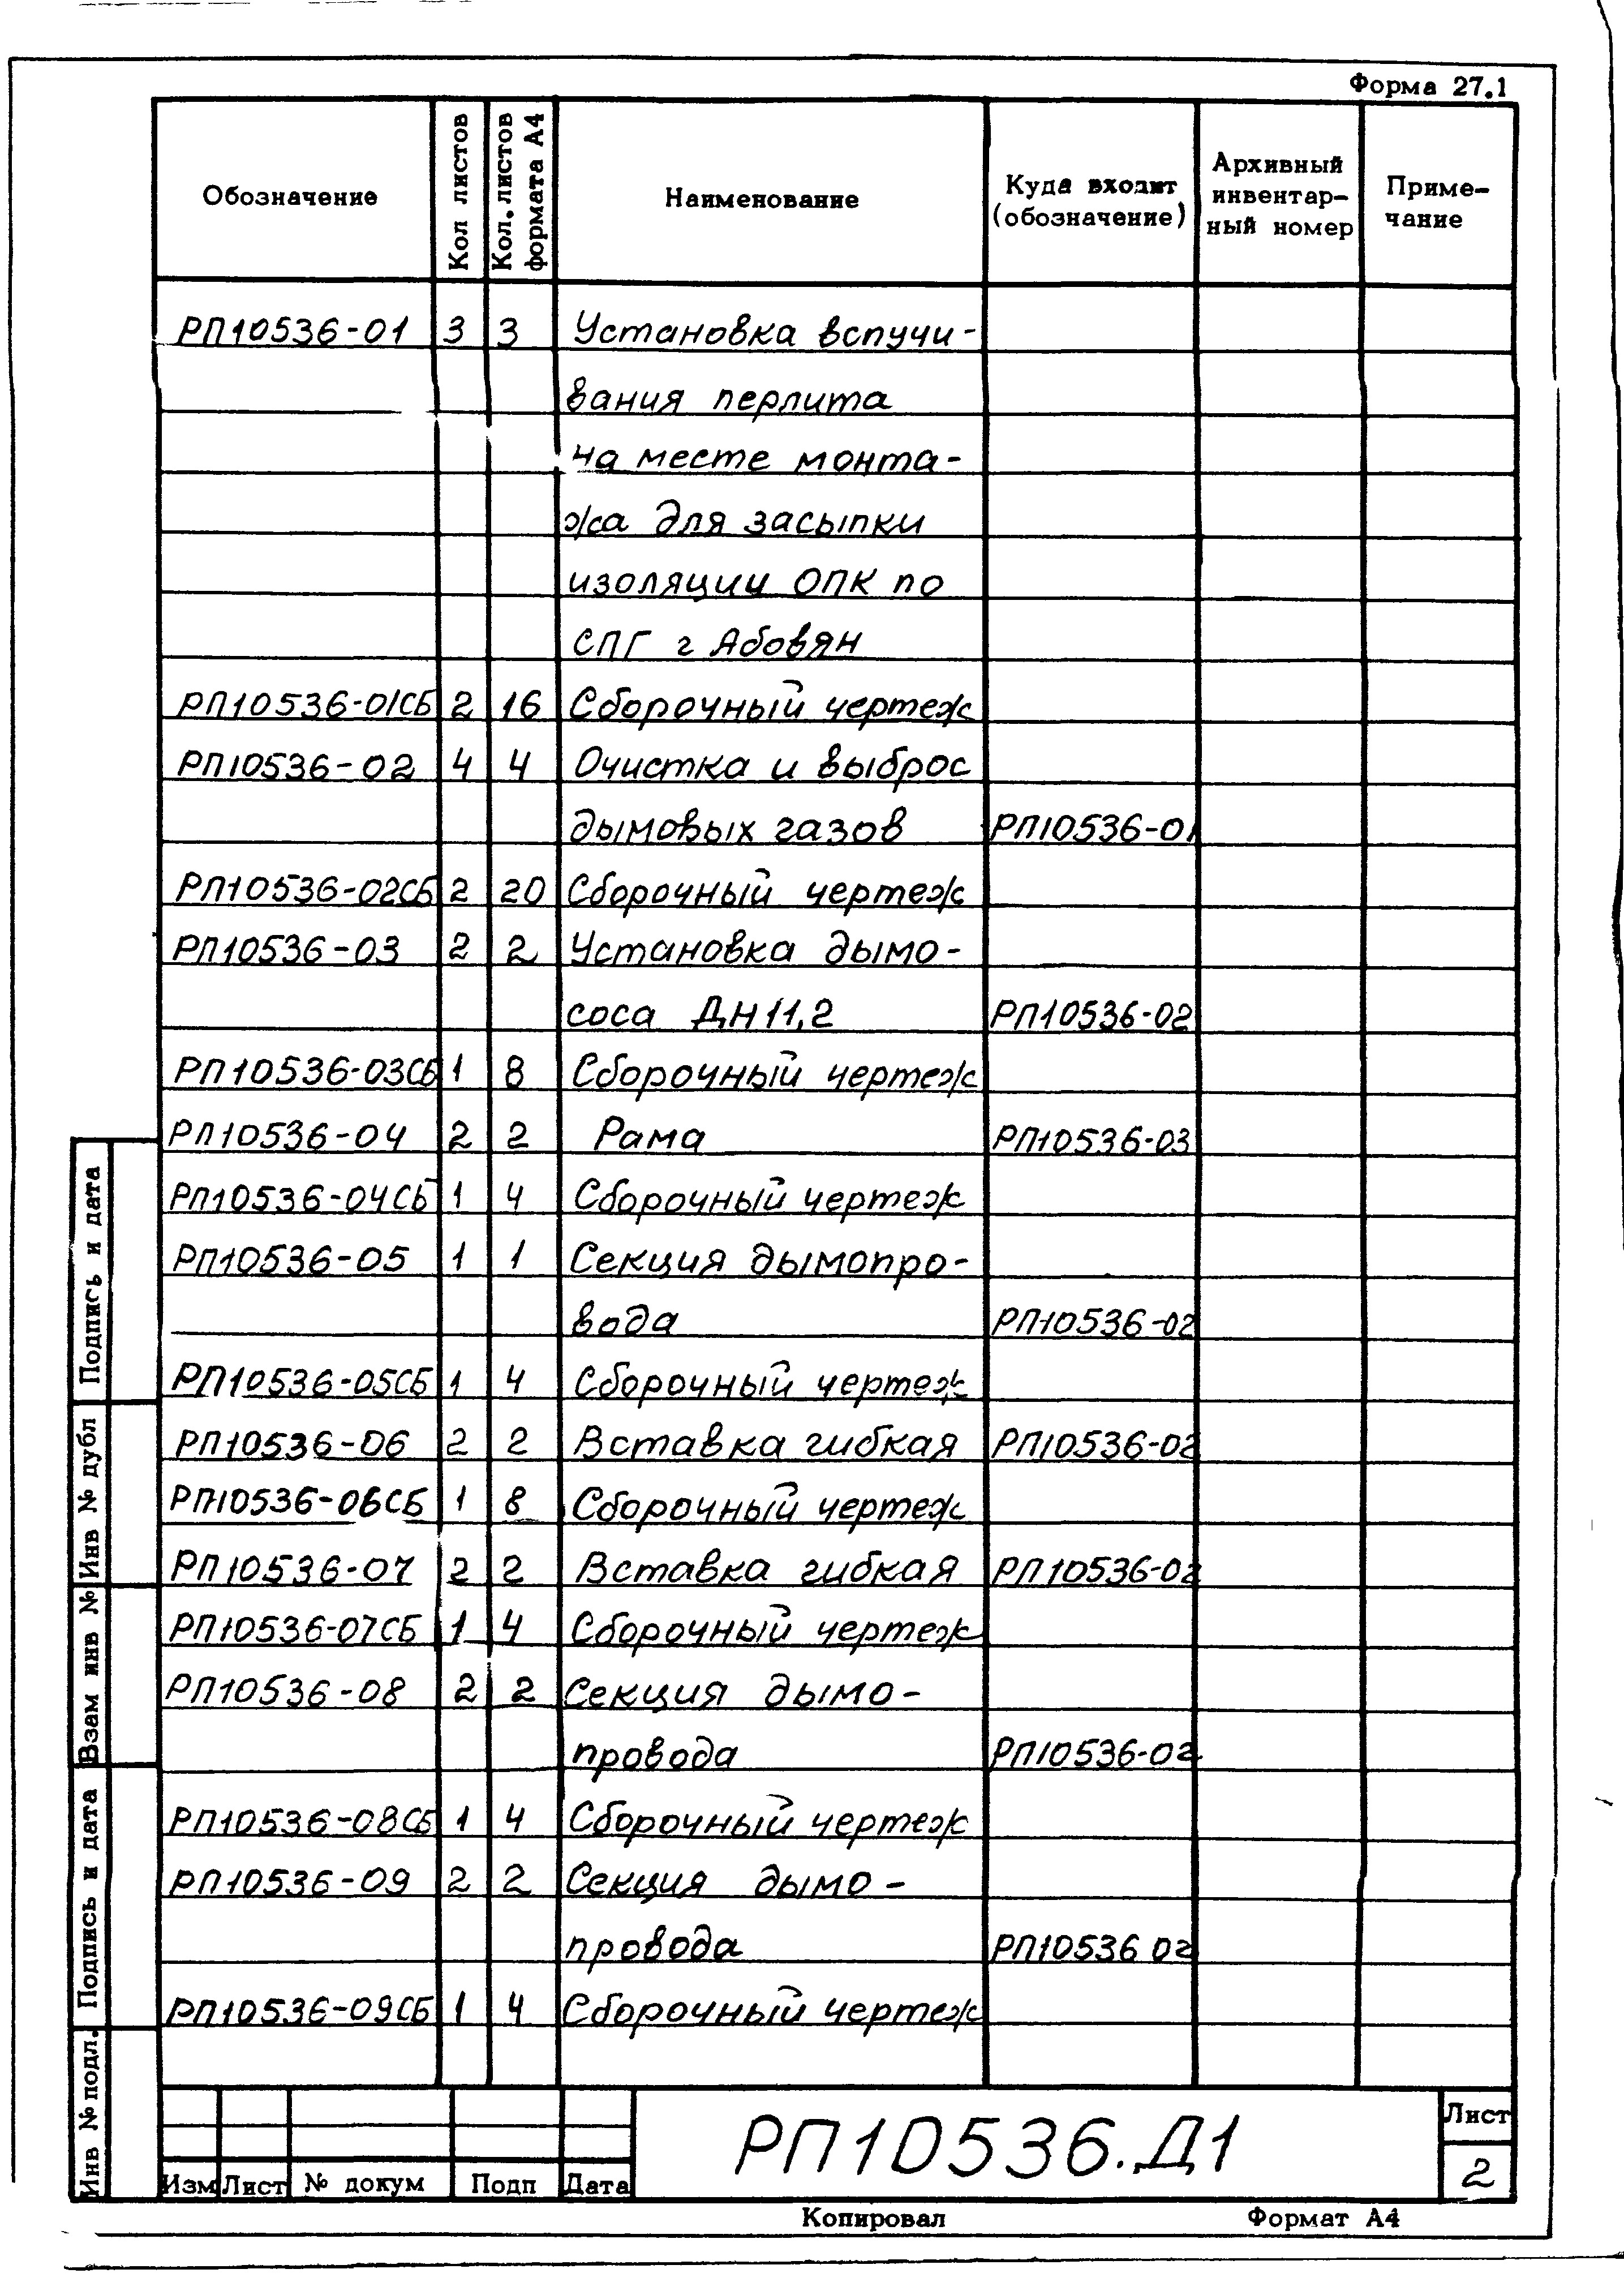 Форма 27.1
Обозначение Кол листов Кол. листов формата А4 Наименование Куда входит (обозначение) Архивный инвентар-ный номер Приме-чание
РП10536-01 3 3 Установка вспучи-
вания перлита
на месте монта-
жа для засыпки
изоляции ОПК по
СПГ г Абовян
РП10536-01СБ 2 16 Сборочный чертеж
РП10536-02 4 4 Очистка и выброс
дымовых газов РП10536-01
РП10536-02СБ 2 20 Сборочный чертеж
РП10536-03 2 2 Установка дымо-
соса ДН11,2 РП10536-02
РП10536-03СБ 1 8 Сборочный чертеж
РП10536-04 2 2 Рама РП10536-03
РП10536-04СБ 1 4 Сборочный чертеж
РП10536-05 1 1 Секция дымопро-
вода РП10536-02
РП10536-05СБ 1 4 Сборочный чертеж
РП10536-06 2 2 Вставка гибкая РП10536-02
РП10536-06СБ 1 8 Сборочный чертеж
РП10536-07 2 2 Вставка гибкая РП10536-02
РП10536-07СБ 1 4 Сборочный чертеж
РП10536-08 2 2 Секция дымо-
провода РП10536-02
РП10536-08СБ 1 4 Сборочный чертеж
РП10536-09 2 2 Секция дымо-
провода РП10536 02
РП10536-09СБ 1 4 Сборочный чертеж
Подпись и дата
Инв № дубл
Взам инв №
Подпись и дата
Инв № подл.
Изм Лист № докум Подп Дата
РП10536.Д1
Лист
2
Копировал Формат А4